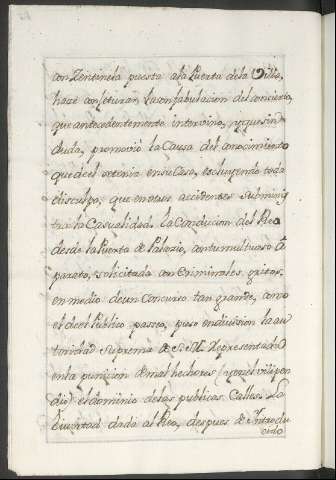 con Zentinela puesta a la Puerta de la Villa,
hace conjeturar, la confabulacion del concierto,
que antecedentemente intervino, y que sin
duda, promovió la Causa del conocimiento
que de el tenia en su Casa, excluyendo toda
disculpa, que en otros accidentes submini
tra la Casualidad. la Conducion del Reo
desde la Puerta de Palacio, con tumultuoso a
parato, solicitada con Criminales gritos,
en medio de un Concurso tan grande, como
el de el Publico paseo, puso en division la au
toridad Suprema de S. M. Representada
en la punicion de mal hechores (y que
dio) el dominio de las publicas Calles. La
livertad dada al Reo, despues de Introdu
cido